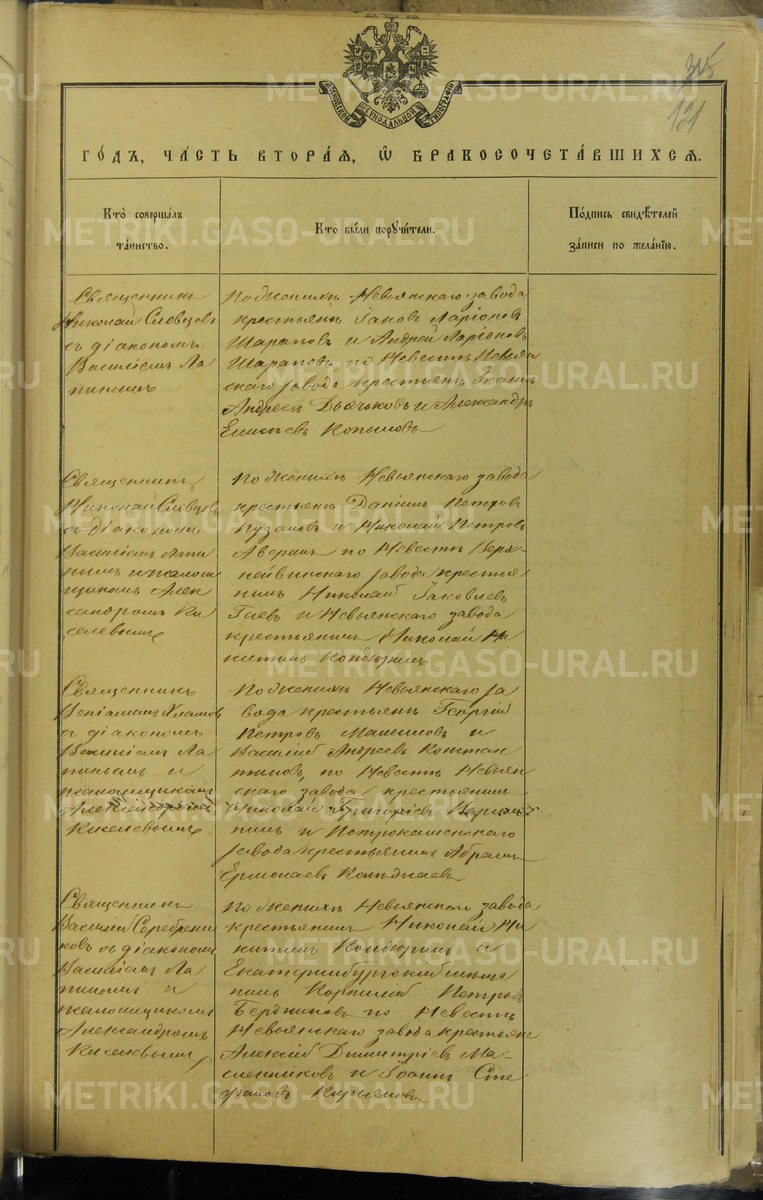 315
121
МОСКОВСКОЙ СѴНОДАЛЬНОЙ ТИПОГРАФІИ
ГО́ДЪ, ЧА́СТЬ ВТОРА́Я, Ѡ҆ БРАКОСОЧЕТА́ВШИХСЯ.
Кто̀ совершáлъ
тáинство.
Кто̀ бы́ли порꙋчи́тели.
По́дпись свидѣ́телей
зáписи по желáнїю.
Священникъ
Николай Словцовъ
съ діакономъ
Василіемъ Ла
пинымъ
По женихѣ Невьянскаго завода
крестьяне Іаковъ Ларіоновъ
Шараповъ и Андрей Ларіоновъ
Шараповъ, по невестѣ Невьян
скаго завода крестьяне Іоаннъ
Андреевъ Дьячковъ и Александръ
Копыловъ
Священникъ
Николай Словцовъ
съ діакономъ
Василіемъ Лапи
нымъ и псалом
щикомъ Алек
сандромъ Ки
селевымъ
По женихѣ Невьянскаго завода
крестьяне Даніилъ Петровъ
Пузановъ и Николай Петровъ
Аверинъ по невестѣ Верх
нейвинскаго завода крестья
нинъ Николай Іаковлевъ
Гаевъ и Невьянскаго завода
крестьянинъ Николай Ни
китинъ Кондюринъ
Священникъ
Веніаминъ Хламовъ
съ діакономъ
Василіемъ Ла
пинымъ и
псаломщикомъ
Александромъ
Киселевымъ
По женихѣ Невьянскаго за
вода крестьяне Георгій
Петровъ и
Василій Андреевъ Констан
тиновъ, по невестѣ Невьян
скаго завода крестьянинъ
Николай Григоріевъ
и Петрокаменскаго
завода крестьянинъ Абрамъ
Ермолаевъ
Священникъ
Василій Серебрени
ковъ съ діакономъ
Василіемъ Ла
пинымъ и
псаломщикомъ
Александромъ
Киселевымъ
По женихѣ Невьянскаго завода
крестьянинъ Николай Ни
китинъ Кондюринъ и
Екатеринбургскій мѣща
нинъ Корнилій Петровъ
Бердниковъ по невестѣ
Невьянскаго завода крестьяне
Алексій Димитріевъ Ма
сленниковъ и Іоаннъ Сте
фановъ Кирьяновъ
METRIKI.GASO-URAL.RU